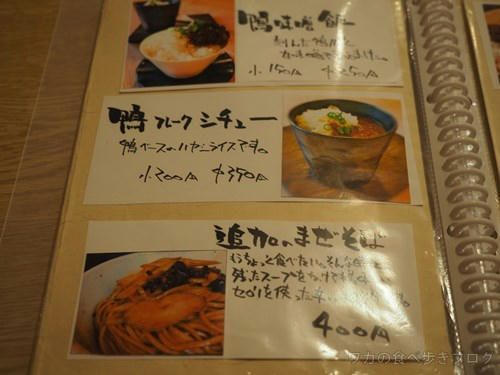 鴨味噌飯
刻んだ鴨肉と
小150円 中250円
鴨フレークシチュー
鴨ベースのハヤシライスです。
小200円 中390円
追加のまぜそば
もうちょっと食べたい。そんな時
残ったスープを
を使った
400円
ワカの食べ歩きブログ